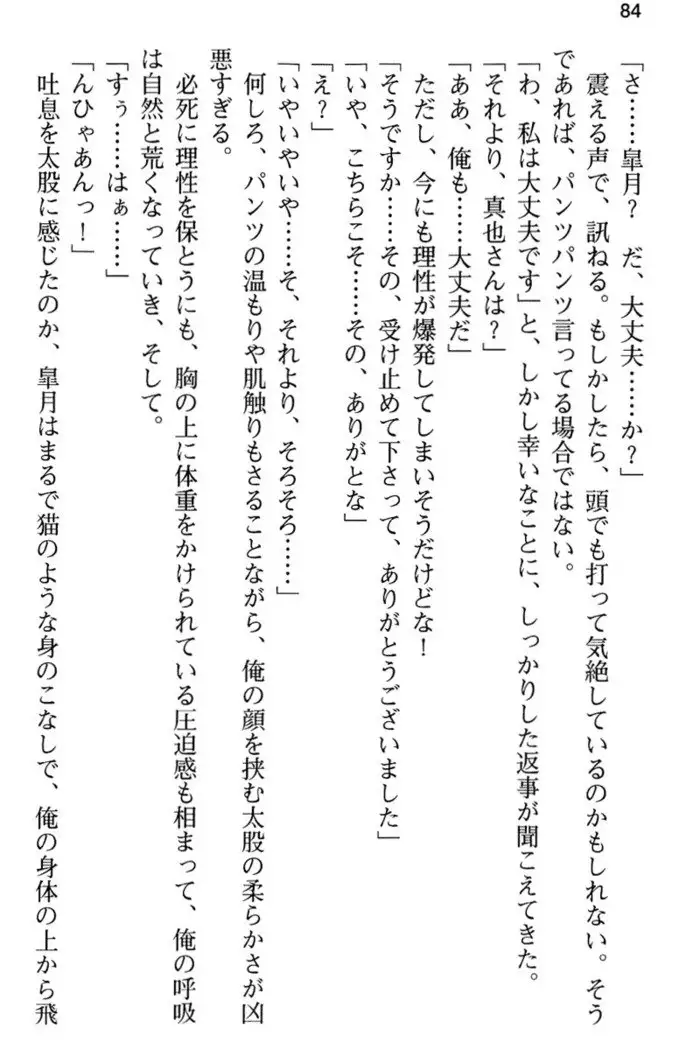 84
「さ……皐月？　だ、大丈夫……か？」
震える声で、訊ねる。もしかしたら、頭でも打って気絶しているのかもしれない。そう
であれば、パンツパンツ言ってる場合ではない。
「わ、私は大丈夫です」と、しかし幸いなことに、しっかりした返事が聞こえてきた。
「それより、真也さんは？」
「ああ、俺も……大丈夫だ」
ただし、今にも理性が爆発してしまいそうだけどな！
「そうですか……その、受け止めて下さって、ありがとうございました」
「いや、こちらこそ……その、ありがとな」
「え？」
「いやいやいや……そ、それより、そろそろ……」
何しろ、パンツの温もりや肌触りもさることながら、俺の顔を挟む太股の柔らかさが凶
悪すぎる。
必死に理性を保とうにも、胸の上に体重をかけられている圧迫感も相まって、俺の呼吸
は自然と荒くなっていき、そして。
「すぅ……はぁ……」
「んひゃあんっ！」
吐息を太股に感じたのか、皐月はまるで猫のような身のこなしで、俺の身体の上から飛